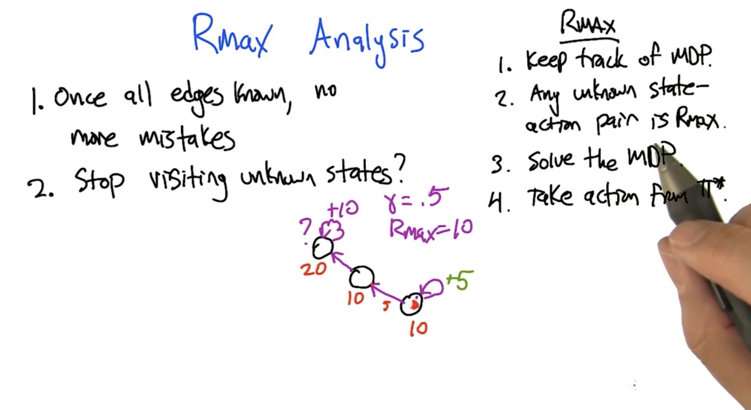 Rmax Analysis
1. Once all edges known, no
more mistakes
2. Stop visiting unknown states?
RMAX
1. Keep track of MDP.
2. Any unknown state-
action pair is Rmax.
3. Solve the MDP.
4. Take action from π*.
+10
γ=.5
?
Rmax=10
20
10
5
+5
10